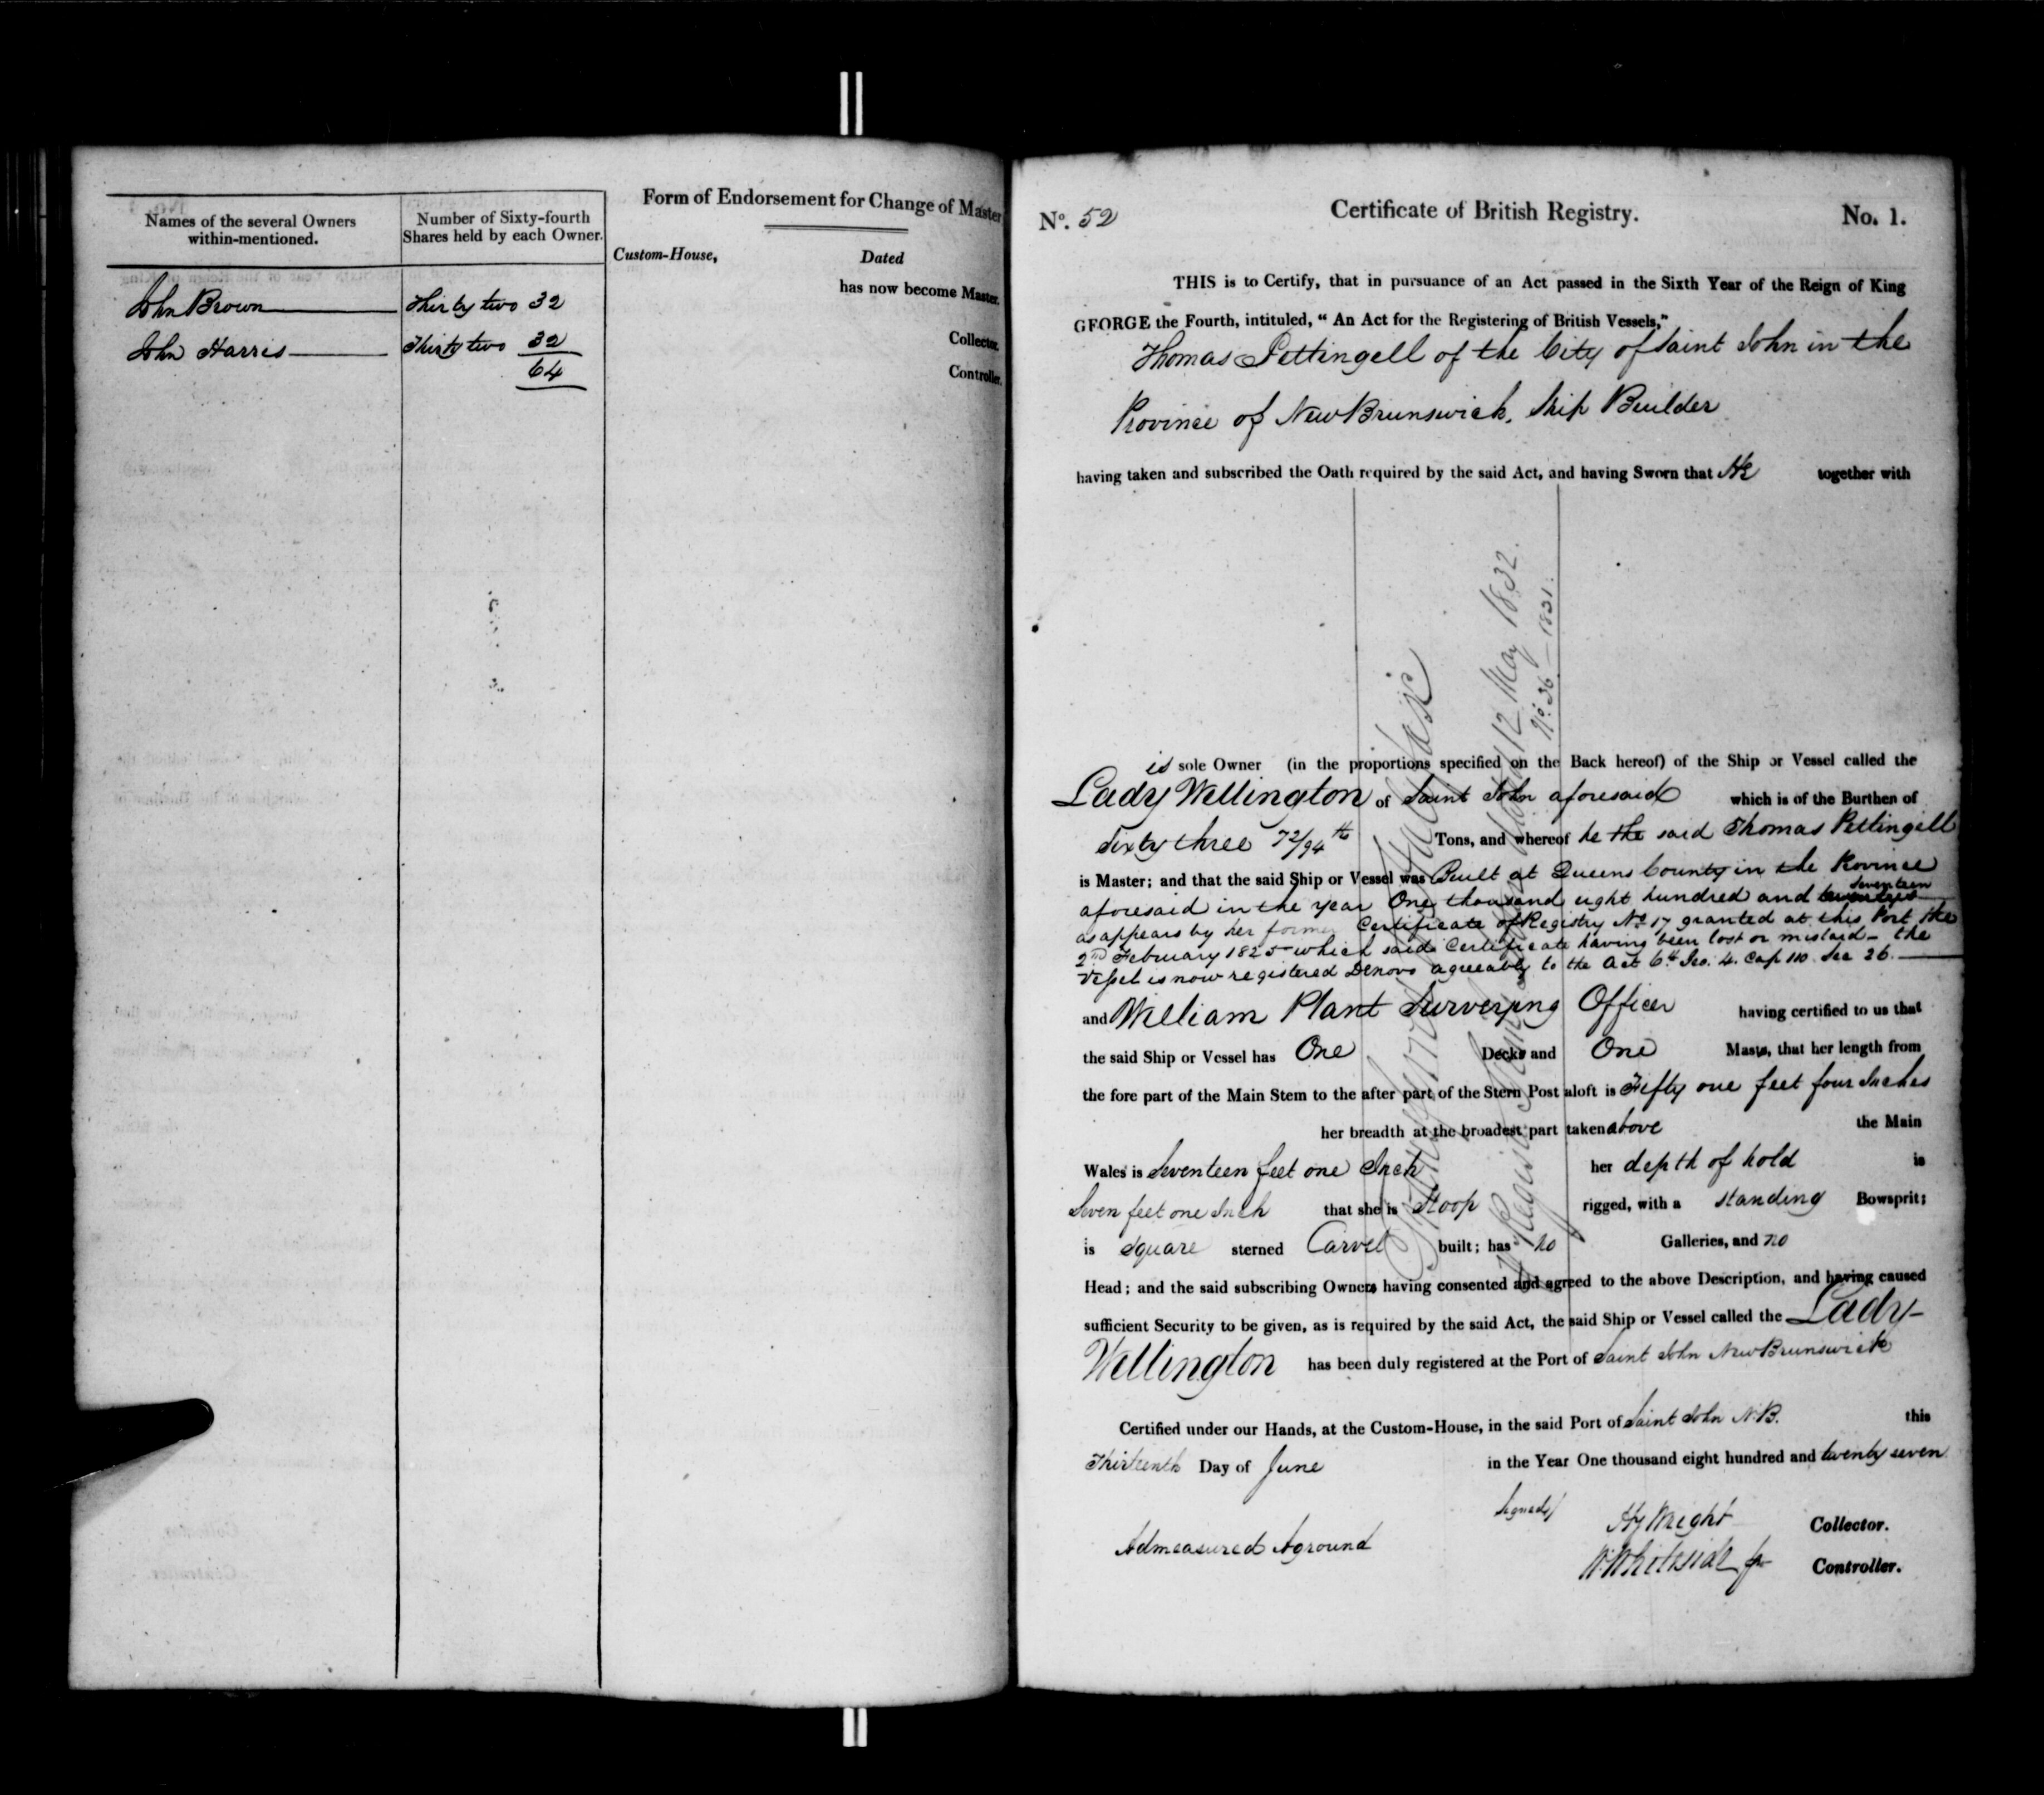 Names of the several Owners
within-mentioned.
Number of Sixty-fourth
Shares held by each Owner.
John Brown
Thirty two 32
John Harris
Thirty two 32
64
Form of Endorsement for Change of Master
Custom-House,
Dated
has now become Master.
Collector.
Controller.
No. 52
Certificate of British Registry.
No. 1.
THIS is to Certify, that in pursuance of an Act passed in the Sixth Year of the Reign of King
GEORGE the Fourth, intituled, “ An Act for the Registering of British Vessels,”
Thomas Pettingell of the City of Saint John in the
Province of New Brunswick, Ship Builder
having taken and subscribed the Oath required by the said Act, and having Sworn that He together with
is sole Owner (in the proportions specified on the Back hereof) of the Ship or Vessel called the
Lady Wellington of Saint John aforesaid which is of the Burthen of
Sixty three 72/94th Tons, and whereof he the said Thomas Pettingell
is Master; and that the said Ship or Vessel was Built at Queens County in the Province
aforesaid in the year One thousand eight hundred and seventeen
as appears by her former Certificate of Registry No 17 granted at this Port the
2nd February 1825 which said Certificate having been lost or mislaid - the
Vessel is now registered Denovo agreeably to the Act 6th Geo. 4. Cap 110. Sec 26.
and William Plant Surveying Officer having certified to us that
the said Ship or Vessel has One Decks and One Masts, that her length from
the fore part of the Main Stem to the after part of the Stern Post aloft is Fifty one feet four Inches
her breadth at the broadest part taken above the Main
Wales is Seventeen feet one Inch her depth of hold is
Seven feet one Inch that she is Sloop rigged, with a standing Bowsprit;
is Square sterned Carvel built; has no Galleries, and no
Head; and the said subscribing Owners having consented and agreed to the above Description, and having caused
sufficient Security to be given, as is required by the said Act, the said Ship or Vessel called the Lady
Wellington has been duly registered at the Port of Saint John New Brunswick
Certified under our Hands, at the Custom-House, in the said Port of Saint John N.B. this
Thirteenth Day of June in the Year One thousand eight hundred and twenty seven
Signed/
Hy Wright Collector.
Admeasured Aground
W. Whiteside Controller.
12 May 1832.
No. 36 - 1831.